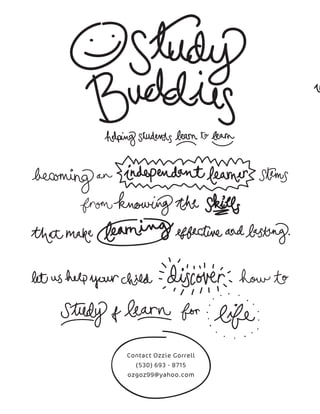 Study
Buddies
helping students learn to learn
becoming an independent learner stems
from knowing the skills
that make learning effective and lasting.
let us help your child discover how to
study & learn for life
Contact Ozzie Gorrell
(530) 693 - 8715
ozgoz99@yahoo.com